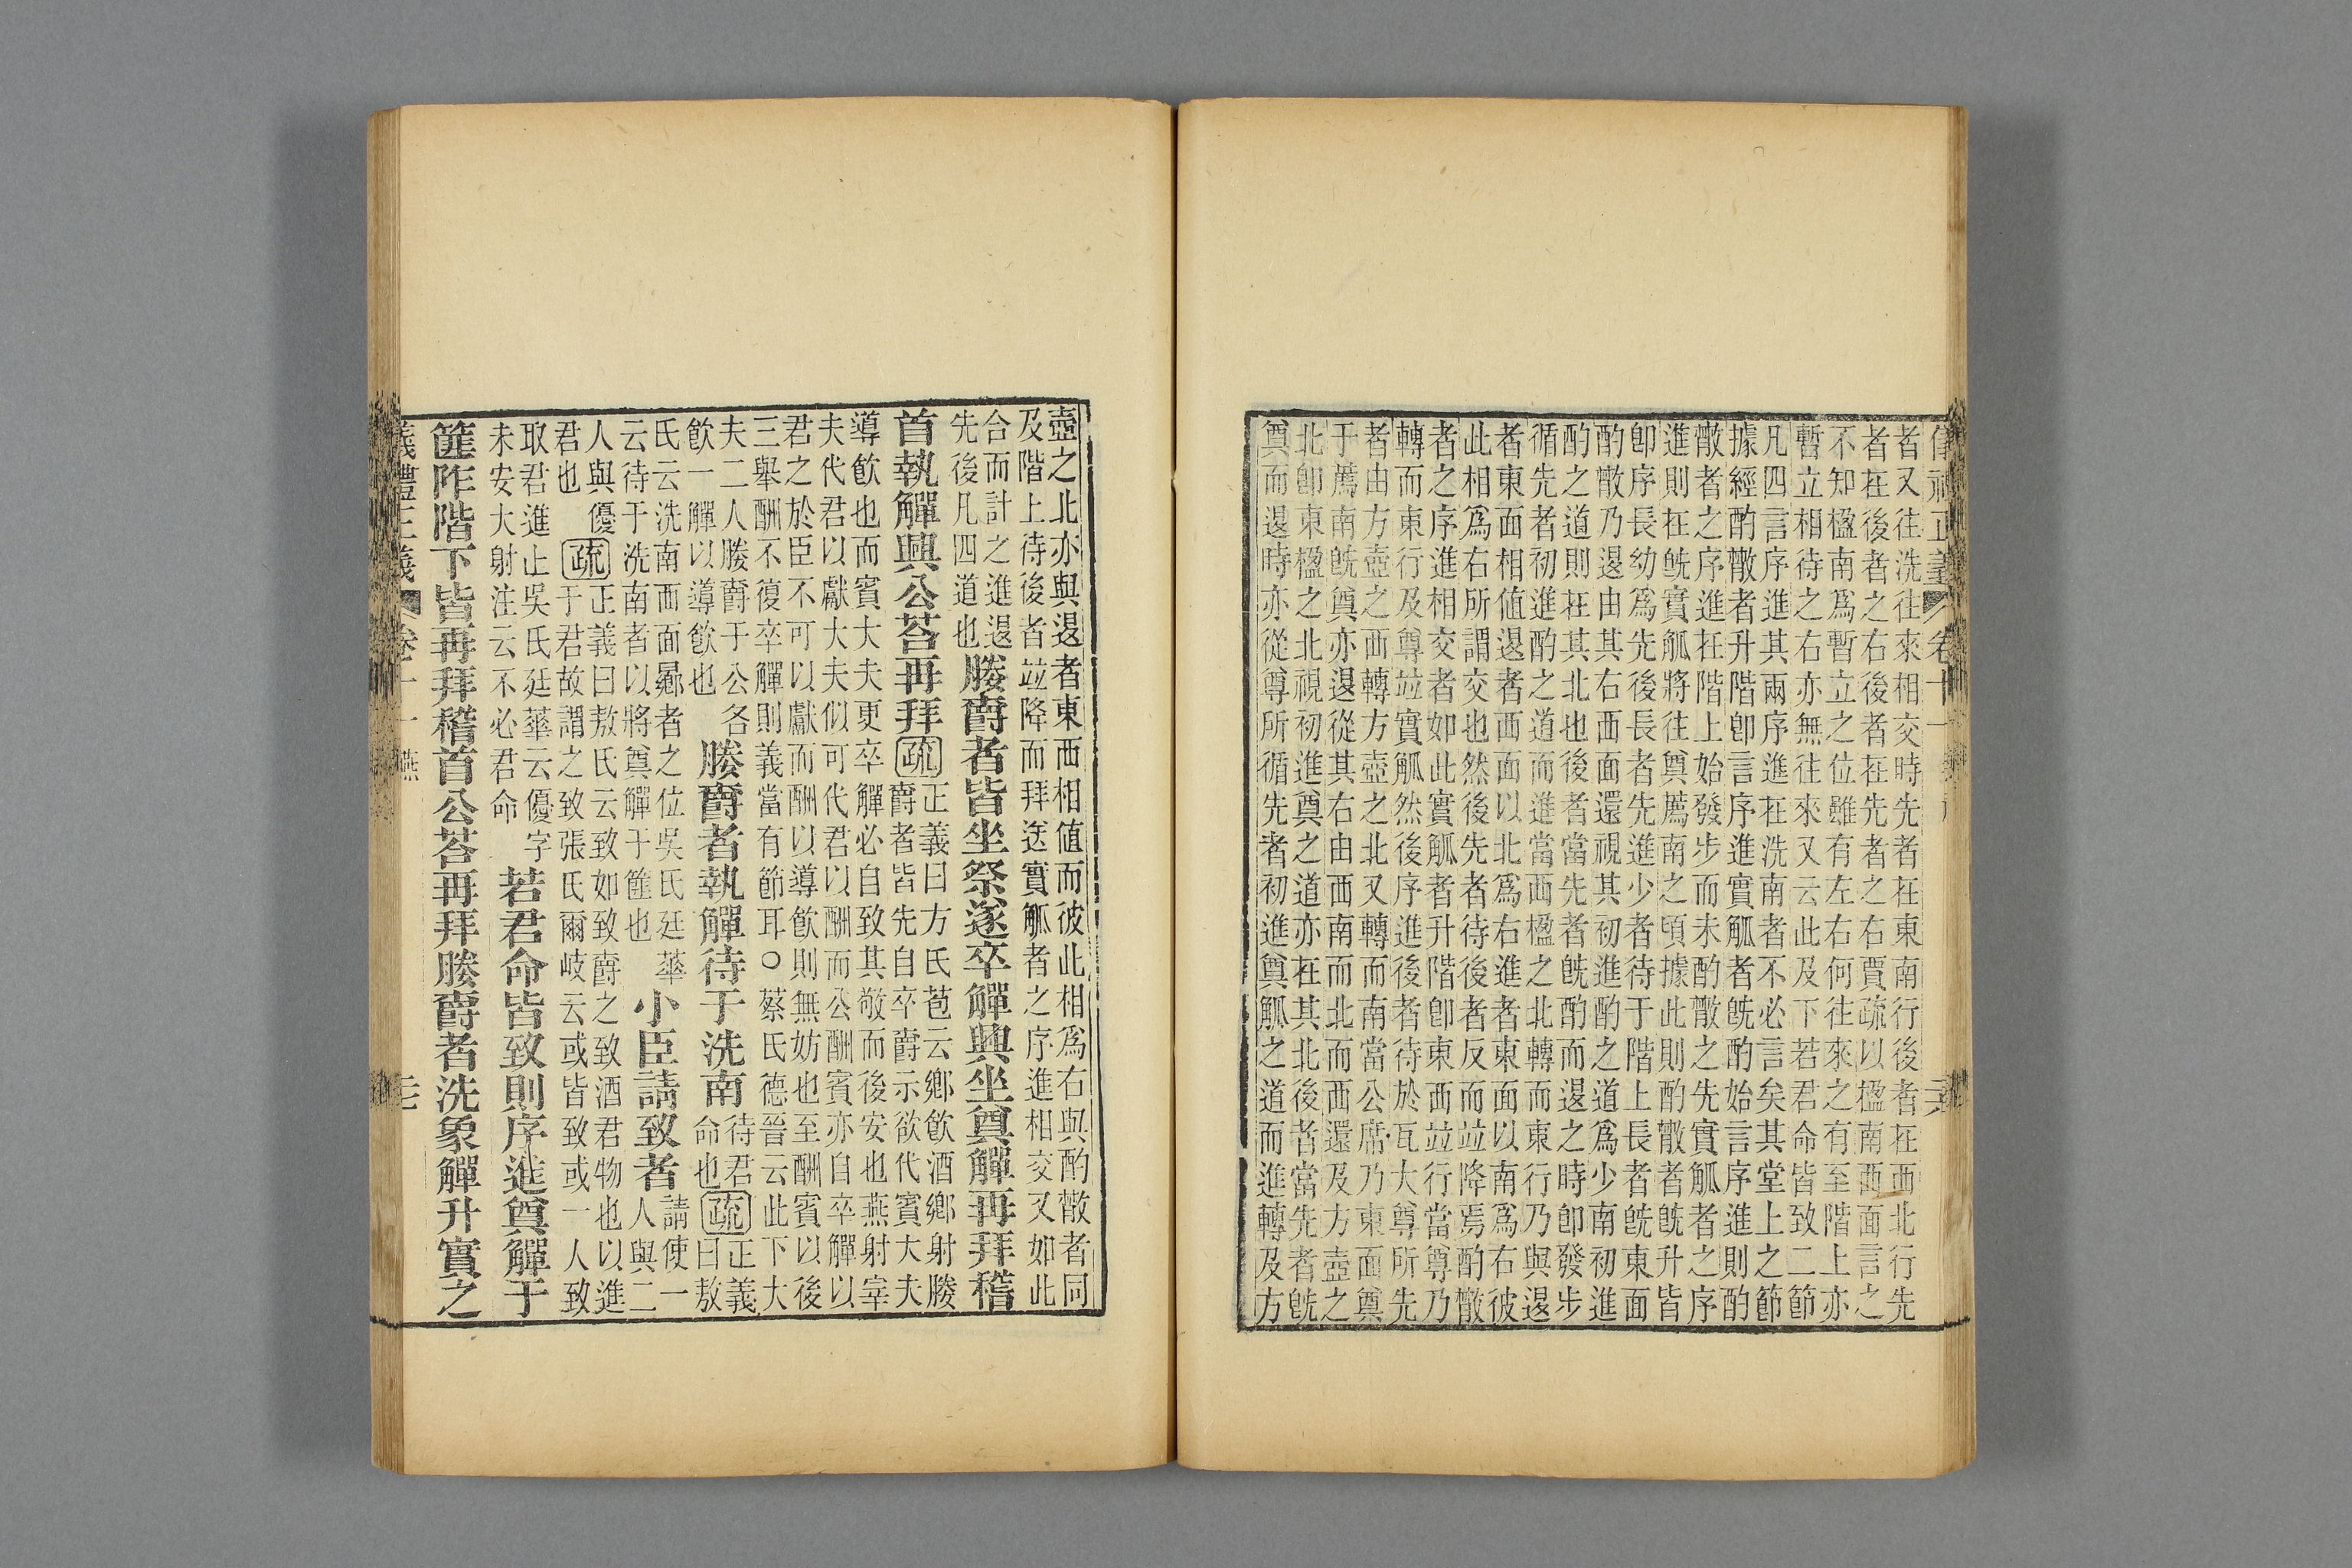 者又往洗往來相交時先者在東南行後者在西北行先
者在後者之右後者在先者之右賈疏以楹南西面言之
不知楹南爲暫立之位雖有左右何往來之有至階上亦
暫立相待之右亦無往來又云此及下若君命皆致二節
凡四言序進其兩序進在洗南者不必言矣其堂上之節
據經酌散者升階卽言序進實觚者旣酌始言序進則酌
散者之序進在階上始發步而未酌散之先實觚者之序
進則在旣實觚將往奠薦南之頃據此則酌散者旣升皆
卽序長幼爲先後長者先進少者待于階上長者旣東面
酌散乃退由其右西面還視其初進酌之道爲少南初進
酌之道則在其北也後者當先者旣酌而退之時卽發步
循先者初進酌之道而進當西楹之北轉而東行乃與退
者東面相值退者西面以北爲右進者東面以南爲右彼
此相爲右所謂交也然後先者待後者反而竝降焉酌散
者之序進相交者如此實觚者升階卽東西竝行當尊乃
轉而東行及尊竝實觚然後序進後者待於瓦大尊所先
者由方壺之西轉方壺之北又轉而南當公席乃東面奠
于薦南旣奠亦退從其右由西南而北而西還及方壺之
北卽東楹之北視初進奠之道亦在其北後者當先者旣
奠而退時亦從尊所循先者初進奠觚之道而進轉及方
壺之北亦與退者東西相值而彼此相爲右與酌散者同
及階上待後者竝降而拜送實觚者之序進相交又如此
合而計之進退
先後凡四道也
媵爵者皆坐祭遂卒觶興坐奠觶再拜稽
首執觶興公荅再拜
疏
正義曰方氏苞云鄉飮酒鄉射媵
爵者皆先自卒爵示欲代賓大夫
導飮也而賓大夫更卒觶必自致其敬而後安也燕射宰
夫代君以獻大夫似可代君以酬而公酬賓亦自卒觶以
君之於臣不可以獻而酬以導飮則無妨也至酬賓以後
三舉酬不復卒觶則義當有節耳○蔡氏德晉云此下大
夫二人媵爵于公各
飮一觶以導飮也
媵爵者執觶待于洗南
待君
命也
疏
正義
曰敖
氏云洗南西面羃者之位吳氏廷華
云待于洗南者以將奠觶于篚也
小臣請致者
請使一
人與二
人與優
君也
疏
正義曰敖氏云致如致爵之致酒君物也以進
于君故謂之致張氏爾岐云或皆致或一人致
取君進止吳氏廷華云優字
未安大射注云不必君命
若君命皆致則序進奠觶于
篚阼階下皆再拜稽首公荅再拜媵爵者洗象觶升實之
儀禮正義 卷十一 燕